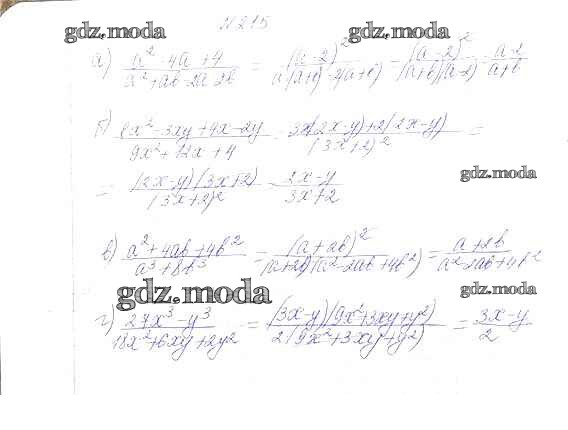 № 215
gdz.moda gdz.moda
а) a² - 4a + 4 / a² + ab - 2a - 2b = (a-2)² / a(a+b) - 2(a+b) = (a-2)² / (a+b)(a-2) = a-2 / a+b
б) 6x² - 3xy + 4x - 2y / 9x² + 12x + 4 = 3x(2x-y)+2(2x-y) / (3x+2)² =
gdz.moda
= (2x-y)(3x+2) / (3x+2)² = 2x-y / 3x+2
в) a² + 4ab + 4b² / a³ + 8b³ = (a+2b)² / (a+2b)(a² - 2ab + 4b²) = a+2b / a² - 2ab + 4b²
gdz.moda gdz.moda
г) 27x³ - y³ / 18x² + 6xy + 2y² = (3x-y)(9x²+3xy+y²) / 2(9x²+3xy+y²) = 3x-y / 2